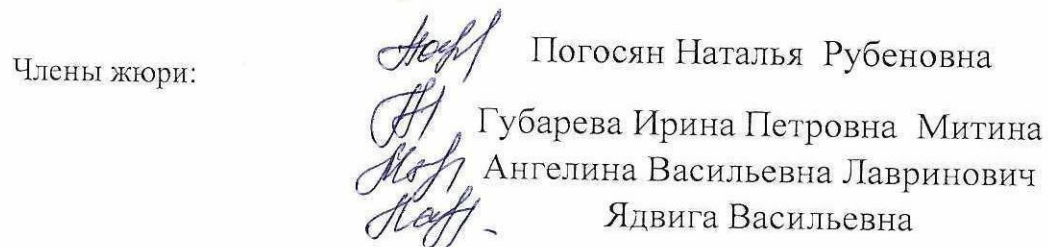 Члены жюри:
Погосян Наталья Рубеновна
Губарева Ирина Петровна Митина
Ангелина Васильевна Лавринович
Ядвига Васильевна